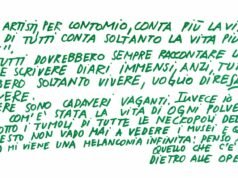 ARTISTI, PER CONTOMIO, CONTA PIÙ LA VI
DI TUTTI CONTA SOLTANTO LA VITA PIÙ
TUTTI DOVREBBERO SEMPRE RACCONTARE L
E SCRIVERE DIARI IMMENSI, ANZI, TUT
BERO SOLTANTO VIVERE, VOGLIO DI
VERE.
ERE SONO CADAVERI VAGANTI. INVECE IO
COM'È STATA LA VITA DI OGNI POLVE
OTTO I TUMULI DI TUTTE LE NECROPOLI DE
ESTO NON VADO MAI A VEDERE I MUSEI E Q
MI VIENE UNA MELANCONIA INFINITA: PENSO
QUELLO CHE C'È
DIETRO ALLE OPE